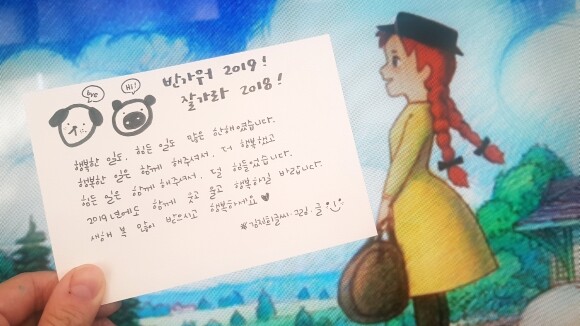 bye
Hi!
반가워 2019!
잘가라 2018!
행복한 일도, 힘든 일도 많은 한해였습니다.
행복한 일은 함께 해주셔서, 더 행복했고
힘든 일은 함께 해주셔서, 덜 힘들었습니다.
2019년에도 함께 웃고 울고 행복하길 바랍니다.
새해 복 많이 받으시고 행복하세요 ♥
글 :)